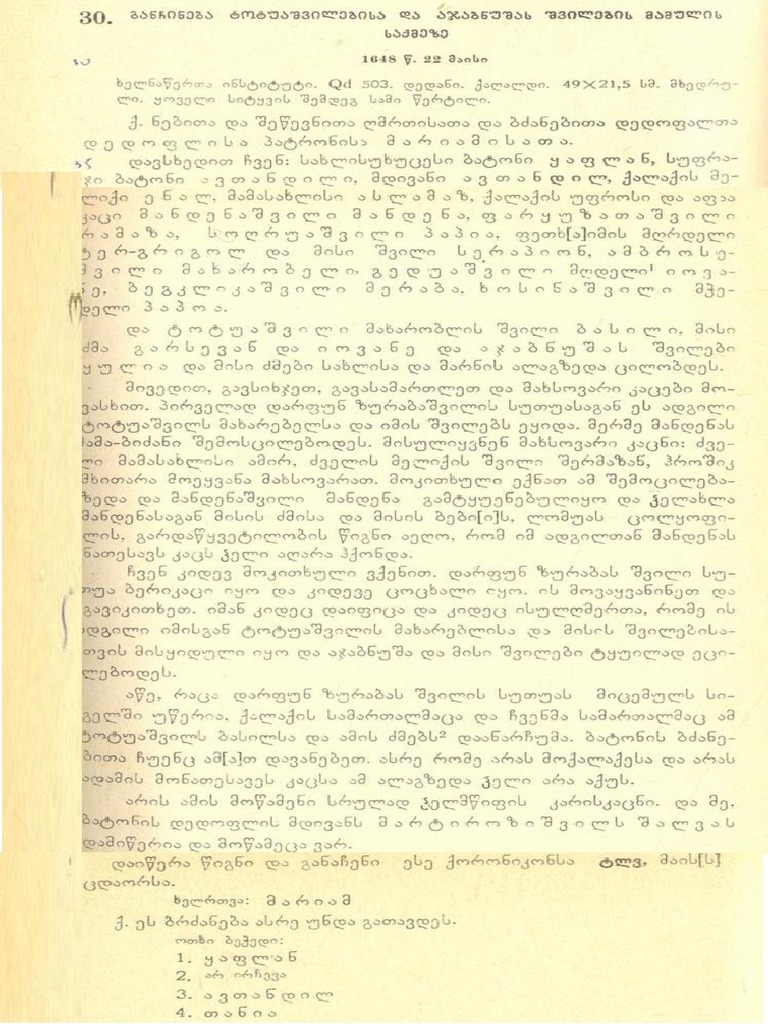 30. განჩინება ტოტუაშვილებისა და აჯაბნუშას შვილების მამულის
საქმეზე
1648 წ. 22 მაისი
ხელნაწერთა ინსტიტუტი. Qd 503. დედანი. ქაღალდი. 49×21,5 სმ. მხედრუ-
ლი. ყოველი სიტყვის შემდეგ სამი წერტილი.
ქ. ნებითა და შეწევნითა ღმრთისათა და ბძანებითა დედოფალთა
დედოფლისა პატრონისა მარიამისათა.
დავსხედით ჩვენ: სახლისუხუცესი ბატონი ყაფლან, სუფრა-
ჯი ბატონი ავთანდილი, მდივანი ავთანდილ, ქალაქის მე-
ლიქი ენალ, მამასახლისი ასლამაზ, ქალაქის უფროსი და აფაა
კაცი მანდენაშვილი მანდენა, ფარყუზათაშვილი
რამაზა, სოღრუაშვილი პაპია, ფეთხ[ა]იმის მღრდელი
ტერ-გრიგოლ და მისი შვილი სერაპიონ, ამბროსე-
შვილი მახარობელი, გედუაშვილი მღდელი¹ იოვა-
ნე, ბეგკლიკაშვილი მერაბა, ხოსინაშვილი მჭე-
დელი პაპოა.
და ტოტუაშვილი მახარობლის შვილი ბასილი, მისი
ძმა გარსევან და იოვანე და აჯაბნუშას შვილები
ყულია და მისი ძმები სახლისა და მარნის ალაგზედა ცილობდეს.
მივედით, გავსიხჯეთ, გავასამართლეთ და მახსოვარი კაცები მო-
ვასხით. პირველად დარფუნ ზურაბაშვილის სუთუასაგან ეს ადგილი
ტოტუაშვილს მახარებელსა და იმის შვილებს ეყიდა. მერმე მანდენას
მამა-ბიძანი შემოსცილებოდეს. მისულიყვნენ მახსოვარი კაცნი: ძვე-
ლი მამასახლისი ამირ, ძველის მელიქის შვილი შერმაზან, ჰროშიკ
მხითარა მოეყვანა მახსოვარათ. მოკითხული ექნათ ამ შემოცილება-
ზედა და მანდენაშვილი მანდენა გამტყუენებულიყო და ჴელახლა
მანდენასაგან მისის ძმისა და მისის ბები[ი]ს, ლომუას ცოლყოფი-
ლის, გარდაწყვეტილობის წიგნი აეღო, რომ იმ ადგილთან მანდენას
ნათესავს კაცს ჴელი აღარა ჰქონდა.
ჩვენ კიდევ მოკითხული ვქენით. დარფუნ ზურაბას შვილი სუ-
თუა ბერიკაცი იყო და კიდევე ცოცხალი იყო. ის მოვაყვანინეთ და
გავიკითხეთ. იმან კიდეც დაიფიცა და კიდეც ისულღმერთა, რომე ის
ადგილი იმისგან ტოტუაშვილის მახარებლისა და მისის შვილებისა-
თვის მისყიდული იყო და აჯაბნუშა და მისი შვილები ტყუილად ეცი-
ლებოდეს.
აწე, რაცა დარფუნ ზურაბას შვილის სუთუას მიცემულს სი-
გელში უწერია, ქალაქის სამართალმაცა და ჩვენმა სამართალმაც ამ
ტოტუაშვილს ბასილსა და ამის ძმებს² დაანარჩუმა. ბატონის ბძანე-
ბითა ჩუენც ამ[ა]თ დავანებეთ. ასრე რომე არას მოქალაქესა და არას
ადამის მონათესავეს კაცსა ამ ალაგზედა ჴელი არა აქუს.
არის ამის მოწამენი სრულად ჴელმწიფის კარისკაცნი. და მე,
ბატონის დედოფლის მდივანს მარტიროზიშვილს შალვას
დამიწერია და მოწამეცა ვარ.
დაიწერა წიგნი და განაჩენი ესე ქორონიკონსა ტლვ, მაის[ს]
ცდაორსა.
ხელრთვა: მარიამ
ქ. ეს ბრძანება ასრე უნდა გათავდეს.
ოთხი ბეჭედი:
1. ყაფლან
2. არ ირჩევა
3. ავთანდილ
4. თანია